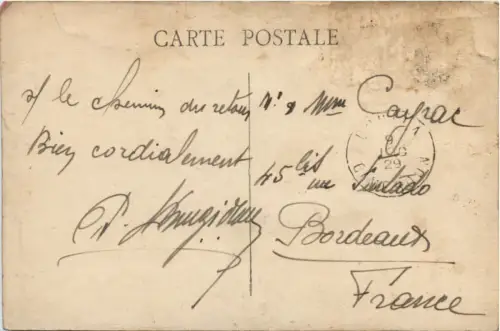 CARTE POSTALE
s/ le chemin du retour
Bien cordialement
Mr & Mme Cayrac
45 bis
rue
Bordeaux
France
29